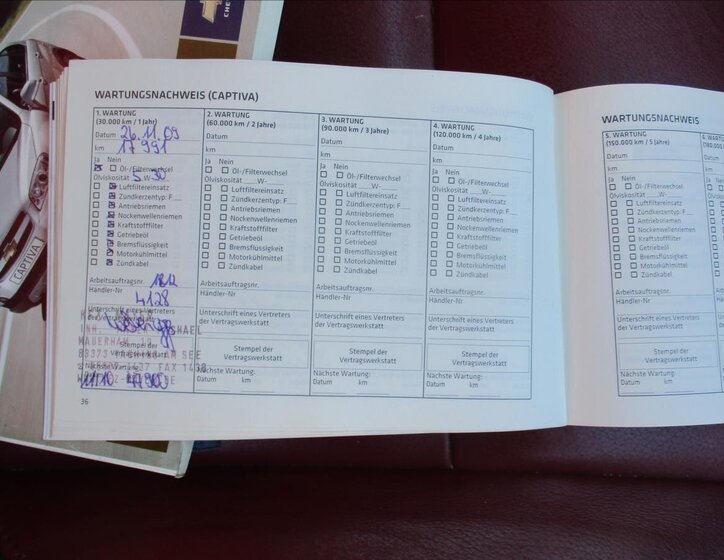 WARTUNGSNACHWEIS (CAPTIVA)
1. WARTUNG
(30.000 km / 1 Jahr)
Datum 26.11.09
km 17 991
Ja Nein
Öl-/Filterwechsel
Ölviskosität 5 W- 30
Luftfiltereinsatz
Zündkerzentyp: F
Antriebsriemen
Nockenwellenriemen
Kraftstofffilter
Getriebeöl
Bremsflüssigkeit
Motorkühlmittel
Zündkabel
Arbeitsauftragsnr.
Händler-Nr 4128
Unterschrift eines Vertreters
der Vertragswerkstatt
Stempel der
Vertragswerkstatt
Nächste Wartung:
11/10 47900
2. WARTUNG
(60.000 km / 2 Jahre)
Datum
km
Ja Nein
Öl-/Filterwechsel
Ölviskosität W-
Luftfiltereinsatz
Zündkerzentyp: F
Antriebsriemen
Nockenwellenriemen
Kraftstofffilter
Getriebeöl
Bremsflüssigkeit
Motorkühlmittel
Zündkabel
Arbeitsauftragsnr.
Händler-Nr
Unterschrift eines Vertreters
der Vertragswerkstatt
Stempel der
Vertragswerkstatt
Nächste Wartung:
Datum km
3. WARTUNG
(90.000 km / 3 Jahre)
Datum
km
Ja Nein
Öl-/Filterwechsel
Ölviskosität W-
Luftfiltereinsatz
Zündkerzentyp: F
Antriebsriemen
Nockenwellenriemen
Kraftstofffilter
Getriebeöl
Bremsflüssigkeit
Motorkühlmittel
Zündkabel
Arbeitsauftragsnr.
Händler-Nr
Unterschrift eines Vertreters
der Vertragswerkstatt
Stempel der
Vertragswerkstatt
Nächste Wartung:
Datum km
4. WARTUNG
(120.000 km / 4 Jahre)
Datum
km
Ja Nein
Öl-/Filterwechsel
Ölviskosität W-
Luftfiltereinsatz
Zündkerzentyp: F
Antriebsriemen
Nockenwellenriemen
Kraftstofffilter
Getriebeöl
Bremsflüssigkeit
Motorkühlmittel
Zündkabel
Arbeitsauftragsnr.
Händler-Nr
Unterschrift eines Vertreters
der Vertragswerkstatt
Stempel der
Vertragswerkstatt
Nächste Wartung:
Datum km
36
WARTUNGSNACHWEIS
5. WARTUNG
(150.000 km / 5 Jahre)
Datum
km
Ja Nein
Öl-/Filterwechsel
Ölviskosität W-
Luftfiltereinsatz
Zündkerzentyp: F
Antriebsriemen
Nockenwellenriemen
Kraftstofffilter
Getriebeöl
Bremsflüssigkeit
Motorkühlmittel
Zündkabel
Arbeitsauftragsnr.
Händler-Nr
Unterschrift eines Vertreters
der Vertragswerkstatt
Stempel der
Vertragswerkstatt
Nächste Wartung:
Datum km
CAPTIVA